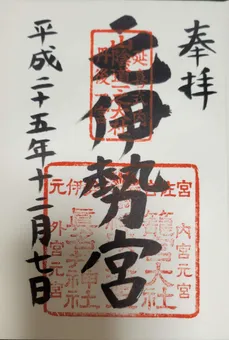 奉拝
元伊勢宮
平成二十五年十二月七日
元伊勢
宮
籠宮大社
眞名井神社
内宮元宮
外宮元宮